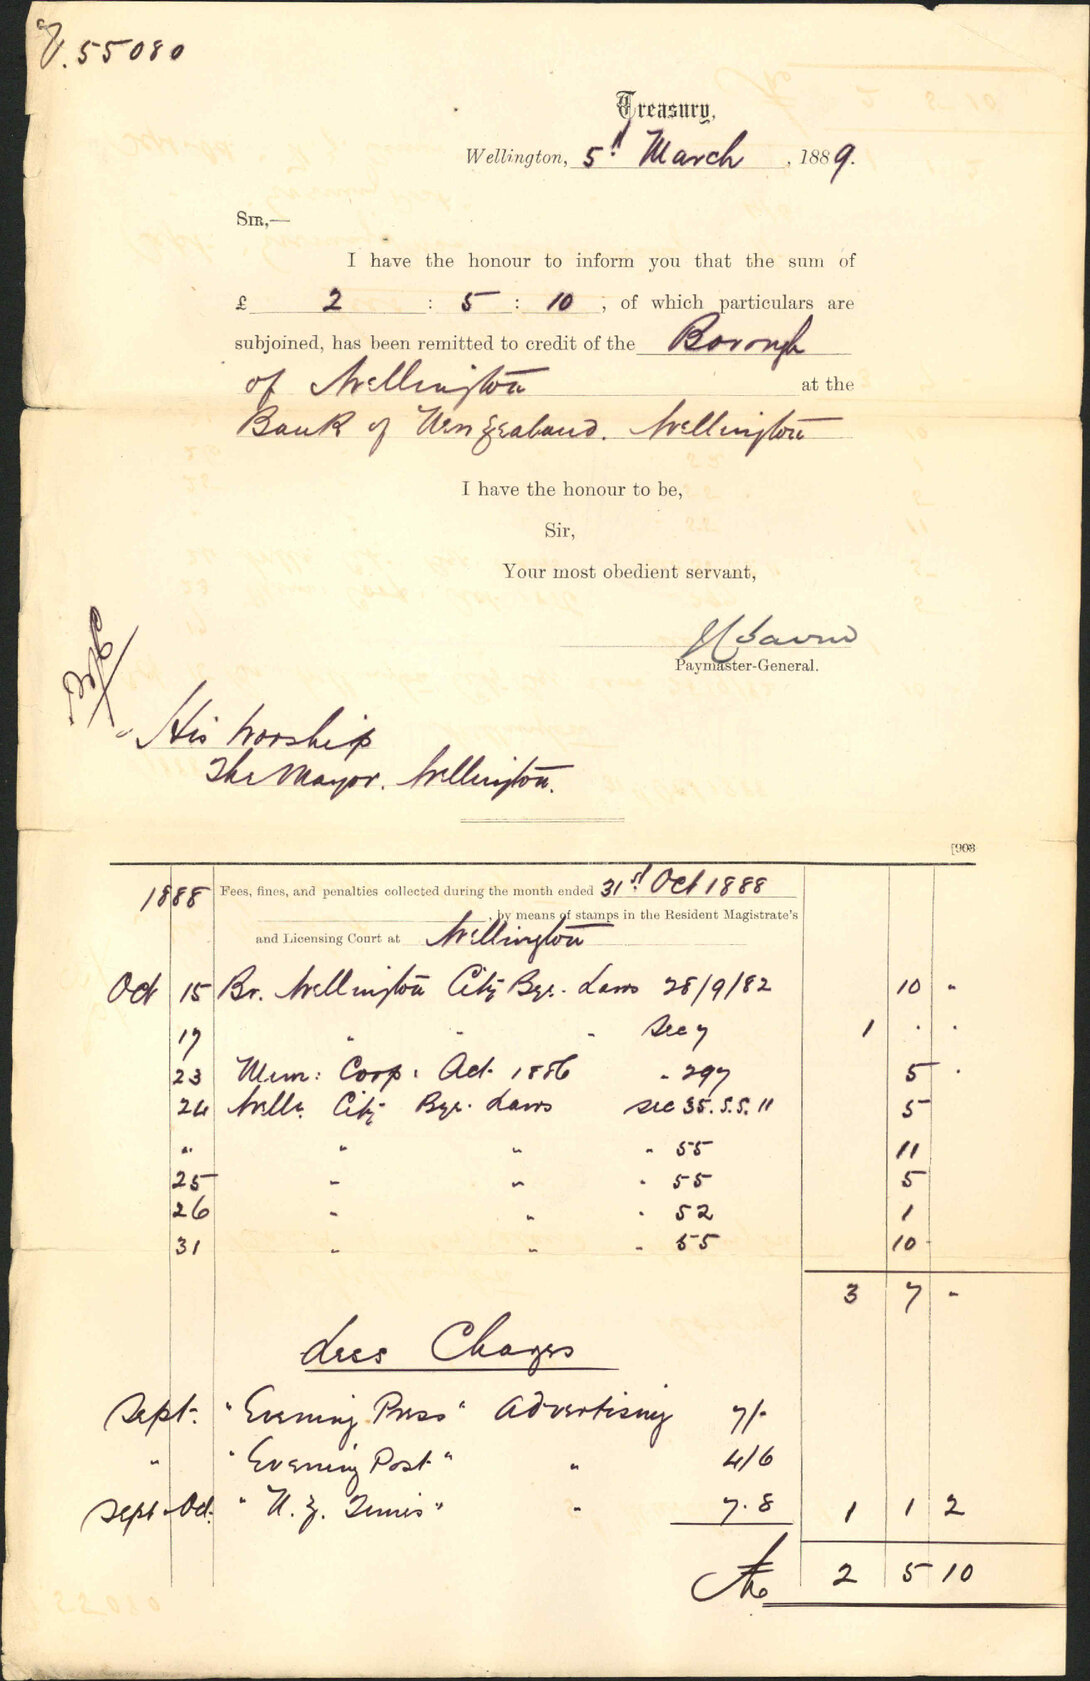 V. 55080
Treasury,
Wellington, 5th March, 1889.
SIR,—
I have the honour to inform you that the sum of
£ 2 : 5 : 10, of which particulars are
subjoined, has been remitted to credit of the Borough
of Wellington at the
Bank of New Zealand. Wellington
I have the honour to be,
Sir,
Your most obedient servant,
Paymaster-General.
His Worship
The Mayor. Wellington.
[903
1888 Fees, fines, and penalties collected during the month ended 31st Oct 1888
, by means of stamps in the Resident Magistrate's
and Licensing Court at Wellington
Oct 15 Br. Wellington City Bye-Laws 28/9/82 10 "
17 " " " Sec 7 1 . .
23 Mun: Corp: Act 1886 " 297 5 .
24 Welln City Bye-Laws sec 35. S.S. 11 5
" " " " 55 11
25 " " " 55 5
26 " " " 52 1
31 " " " 55 10
3 7 -
Less Charges
Sept. "Evening Press" Advertising 7/-
" "Evening Post" " 4/6
Sept-Oct. "N. Z. Times" " 7.8 1 1 2
£ 2 5 10